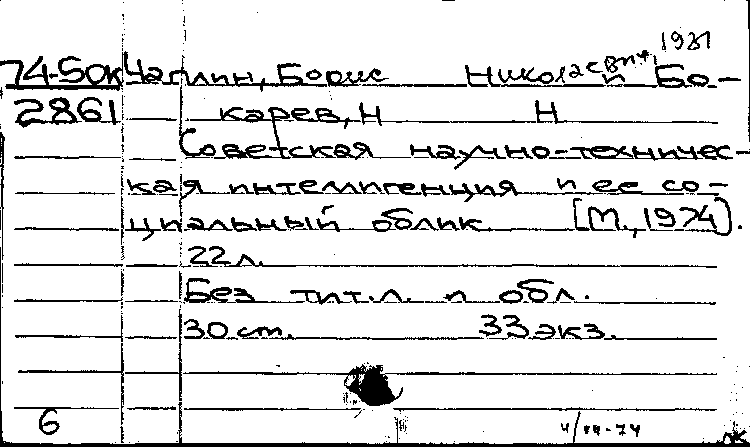 1931
74-50к Чаплин, Борис Николаевич, и Бо-
2861 карев, Н Н
Советская научно-техничес-
кая интеллигенция и ее со-
циальный облик [М., 1974].
22 л.
Без тит.л. и обл.
30 ст. 33 экз.
6